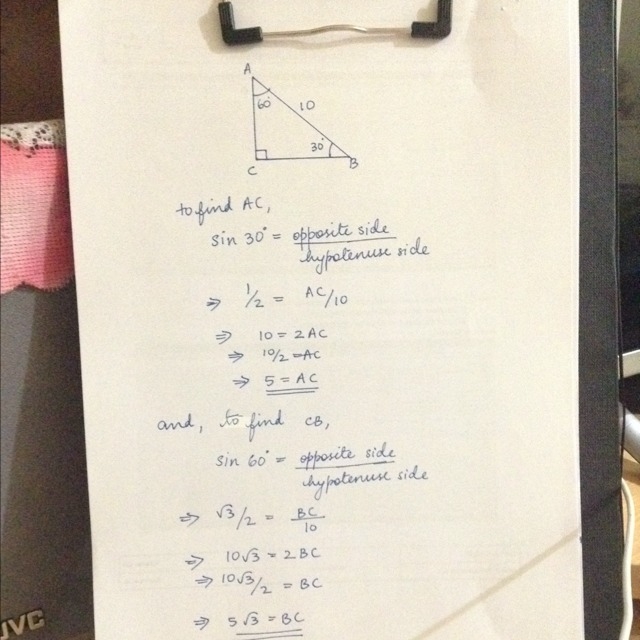 A
60°
10
30°
C
B
to find AC,
sin 30° = opposite side
hypotenuse side
⇒ 1/2 = AC/10
⇒ 10 = 2AC
⇒ 10/2 = AC
⇒ 5 = AC
and, to find CB,
sin 60° = opposite side
hypotenuse side
⇒ √3/2 = BC
10
⇒ 10√3 = 2BC
⇒ 10√3/2 = BC
⇒ 5√3 = BC
JVC